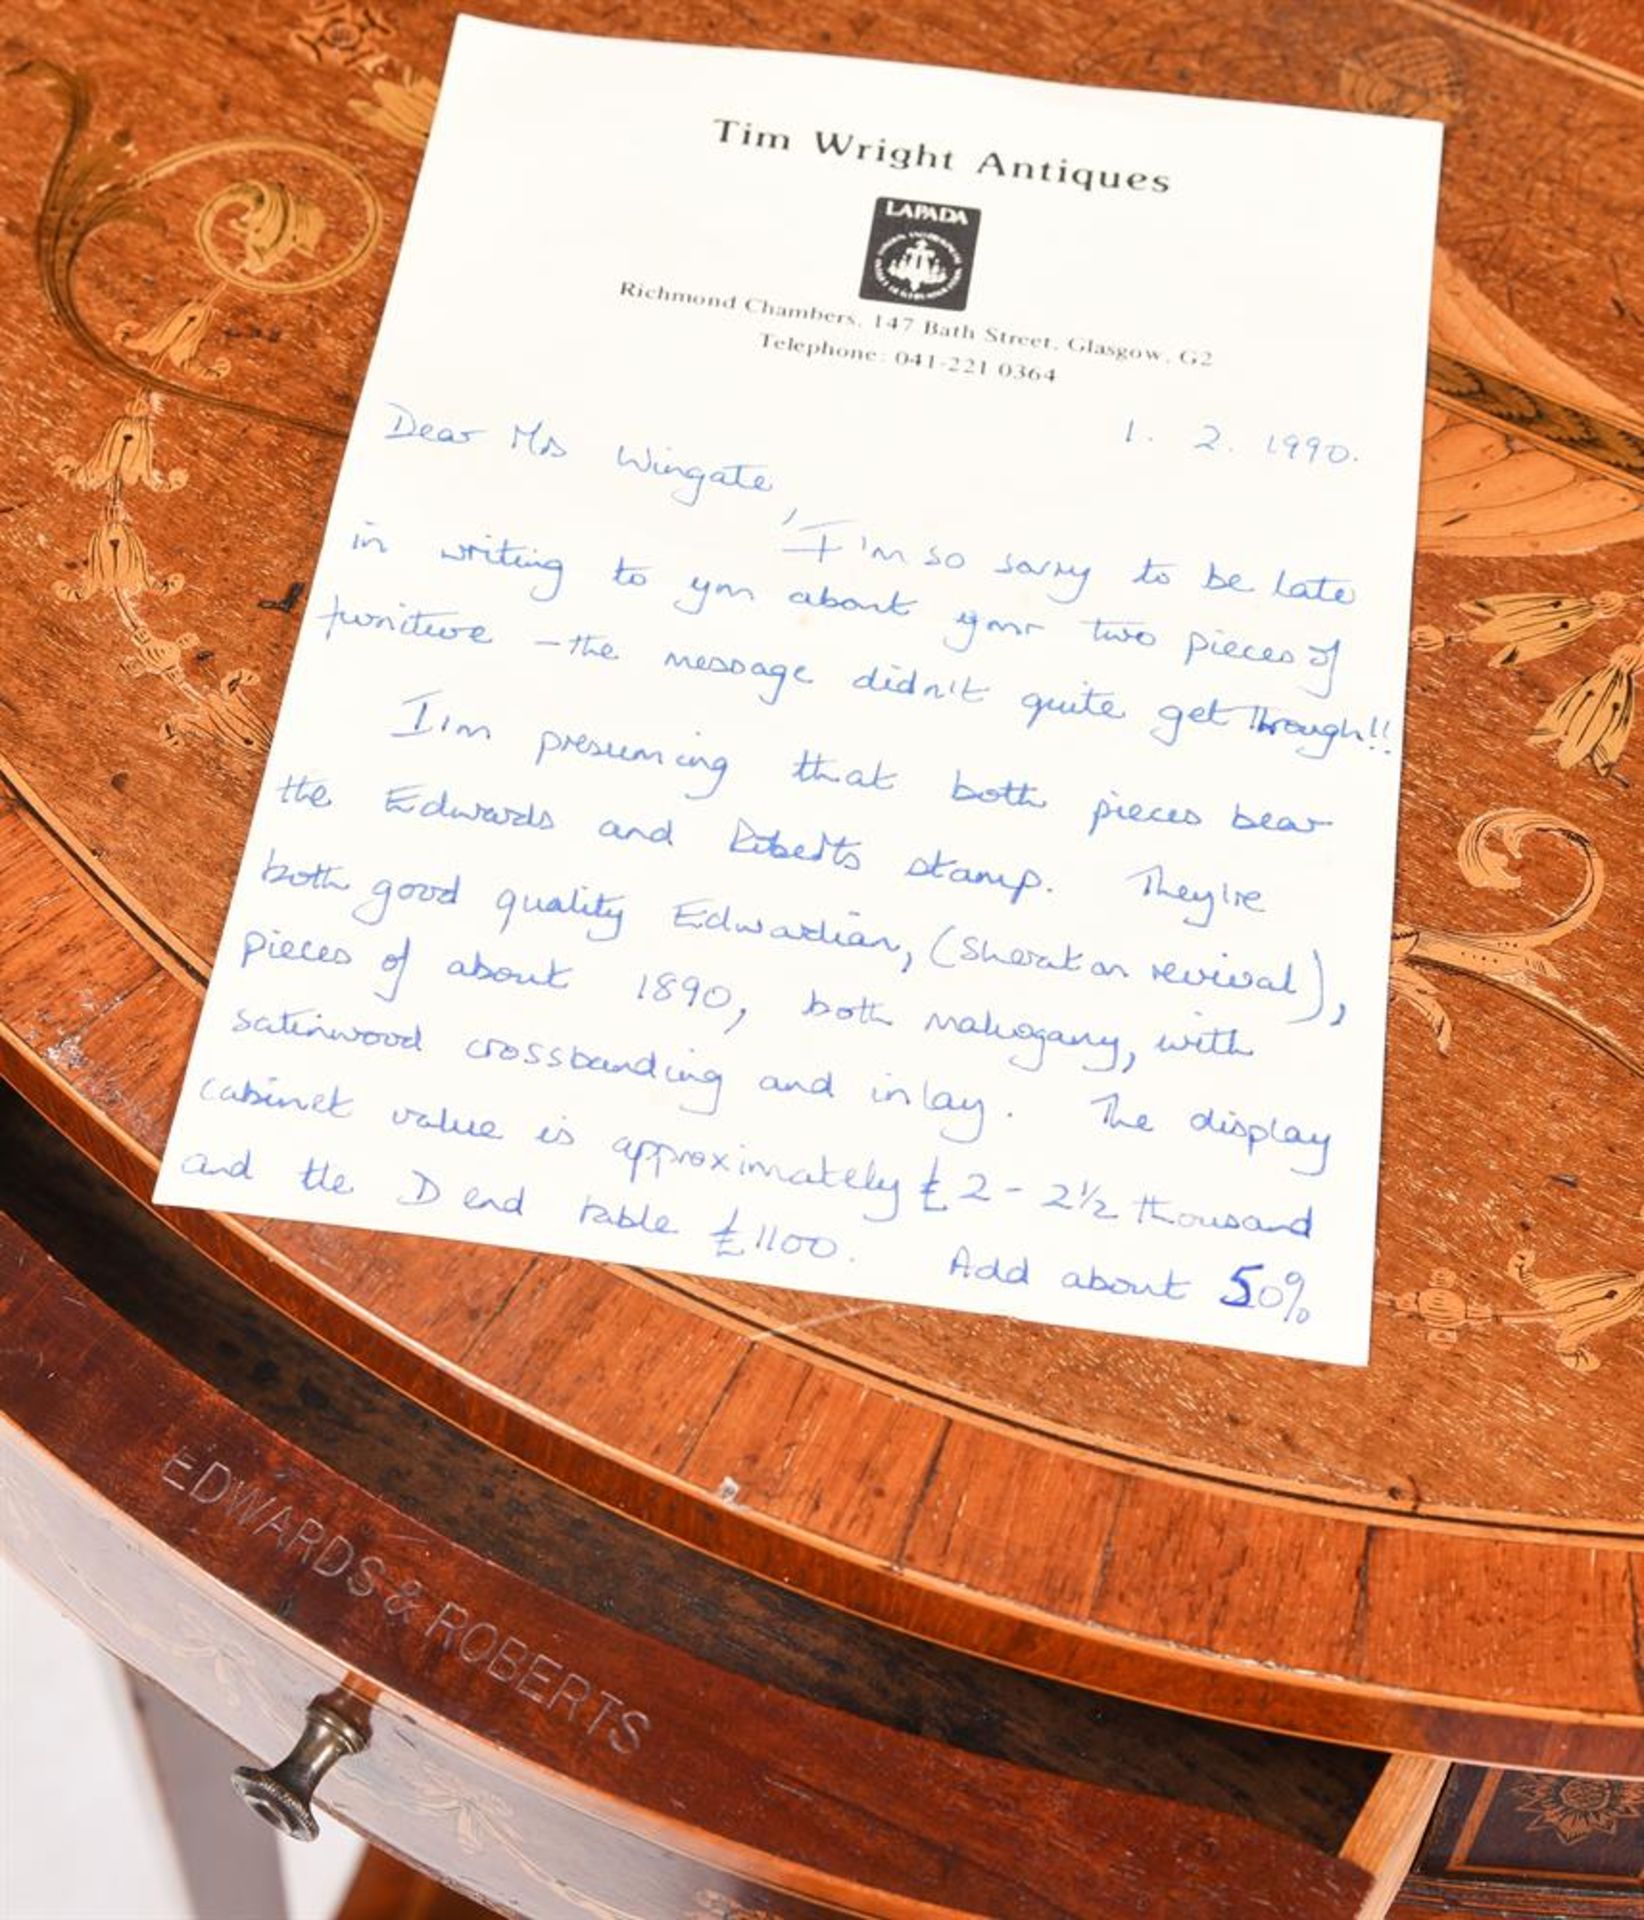 Tim Wright Antiques
LAPADA
Richmond Chambers, 147 Bath Street, Glasgow, G2
Telephone: 041-221 0364
1. 2. 1990.
Dear Mrs Wingate,
I'm so sorry to be late
in writing to you about your two pieces of
furniture - the message didn't quite get through!!
I'm presuming that both pieces bear
the Edwards and Roberts stamp. They're
both good quality Edwardian, (Sheraton revival),
pieces of about 1890, both mahogany, with
satinwood crossbanding and inlay. The display
cabinet value is approximately £2 - 2½ thousand
and the D end table £1100. Add about 50%
EDWARDS & ROBERTS